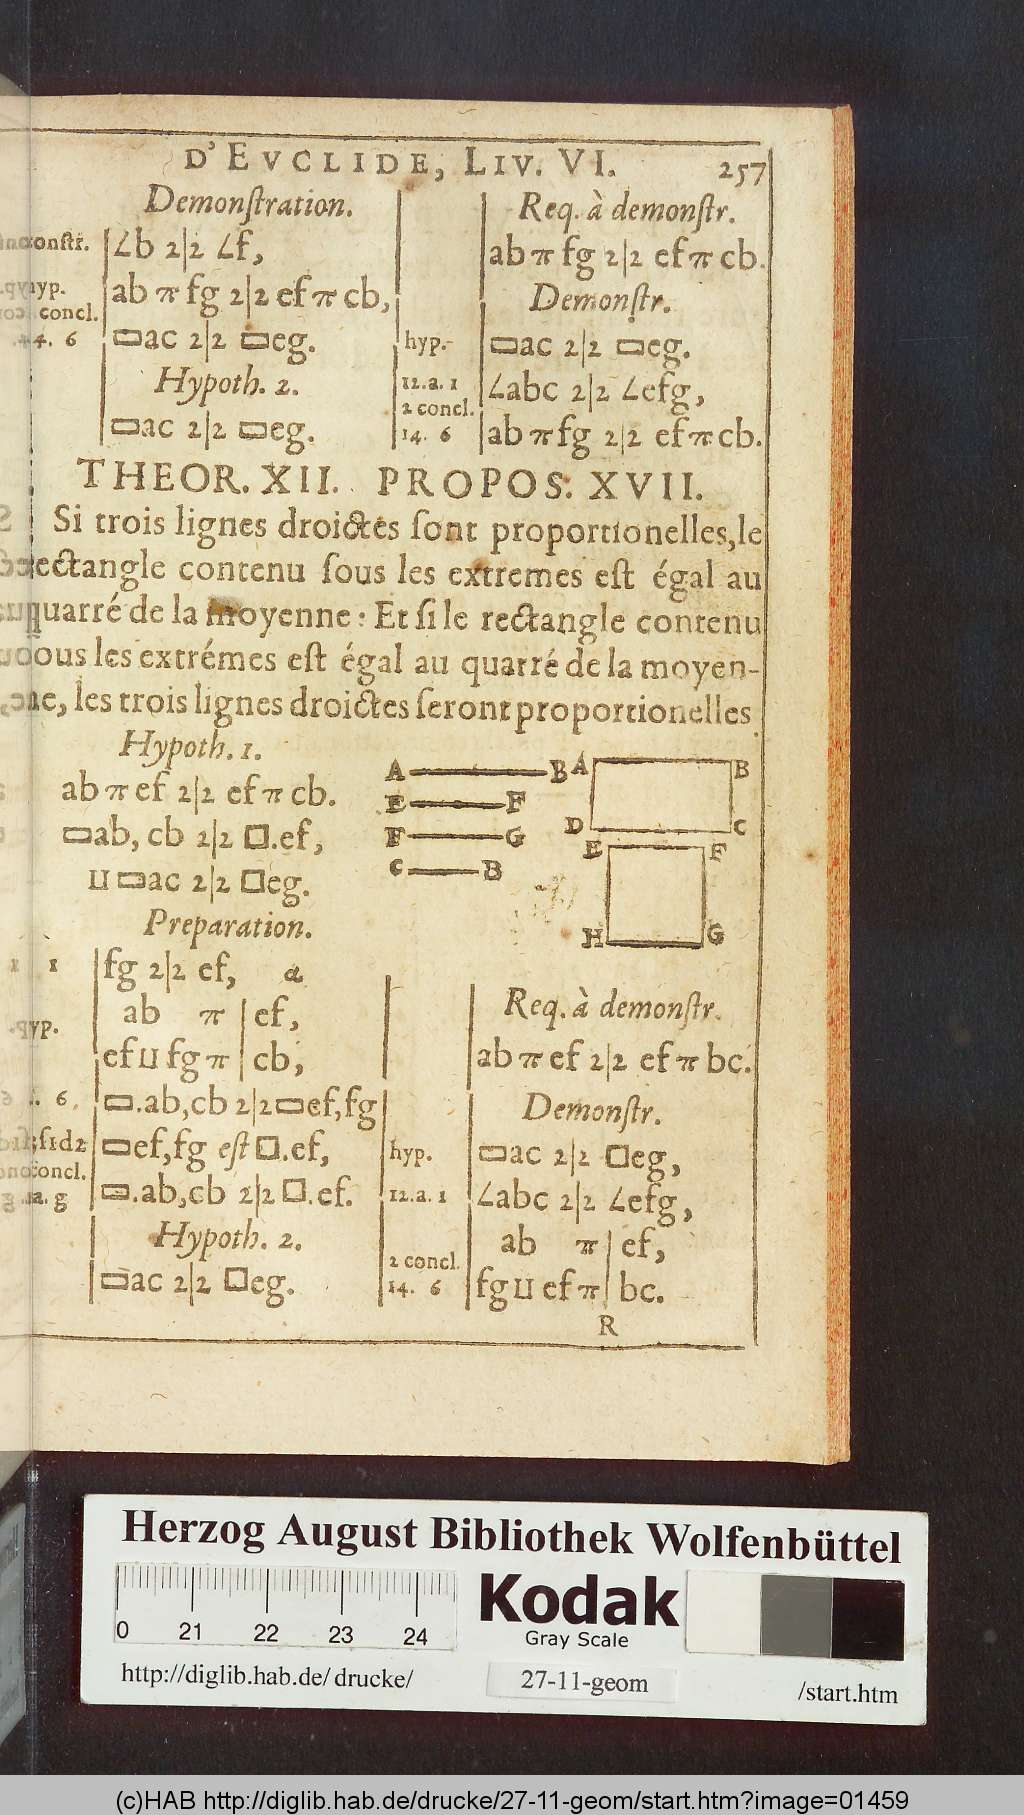 D'EVCLIDE, LIV. VI. 257
Demonſtration.
conſtr. ∠b 2|2 ∠f,
hyp. ab π fg 2|2 ef π cb,
concl.
14. 6 ▭ac 2|2 ▭eg.
Hypoth. 2.
▭ac 2|2 ▭eg.
Req. à demonſtr.
ab π fg 2|2 ef π cb.
Demonſtr.
hyp. ▭ac 2|2 ▭eg.
12. a. 1 ∠abc 2|2 ∠efg,
2 concl.
14. 6 ab π fg 2|2 ef π cb.
THEOR. XII. PROPOS. XVII.
Si trois lignes droictes ſont proportionelles, le
rectangle contenu ſous les extremes eſt égal au
quarré de la moyenne : Et ſi le rectangle contenu
ſous les extrémes eſt égal au quarré de la moyen-
ne, les trois lignes droictes ſeront proportionelles.
Hypoth. 1.
ab π ef 2|2 ef π cb.
▭ab, cb 2|2 □.ef,
⊔ ▭ac 2|2 □eg.
A B
E F
F G
C B
A B
D C
E F
H G
Preparation.
1 fg 2|2 ef, α
hyp. ab π | ef,
ef ⊔ fg π | cb,
6. ▭.ab,cb 2|2 ▭ef,fg
▭ef,fg eſt □.ef,
concl.
1.a. g ▭.ab,cb 2|2 □.ef.
Hypoth. 2.
▭ac 2|2 □eg.
Req. à demonſtr.
ab π ef 2|2 ef π bc.
Demonſtr.
hyp. ▭ac 2|2 □eg,
12.a. 1 ∠abc 2|2 ∠efg,
2 concl. ab π | ef,
14. 6 fg ⊔ ef π | bc.
R
Herzog August Bibliothek Wolfenbüttel
0 21 22 23 24
Kodak
Gray Scale
http://diglib.hab.de/drucke/ 27-11-geom /start.htm
(c)HAB http://diglib.hab.de/drucke/27-11-geom/start.htm?image=01459